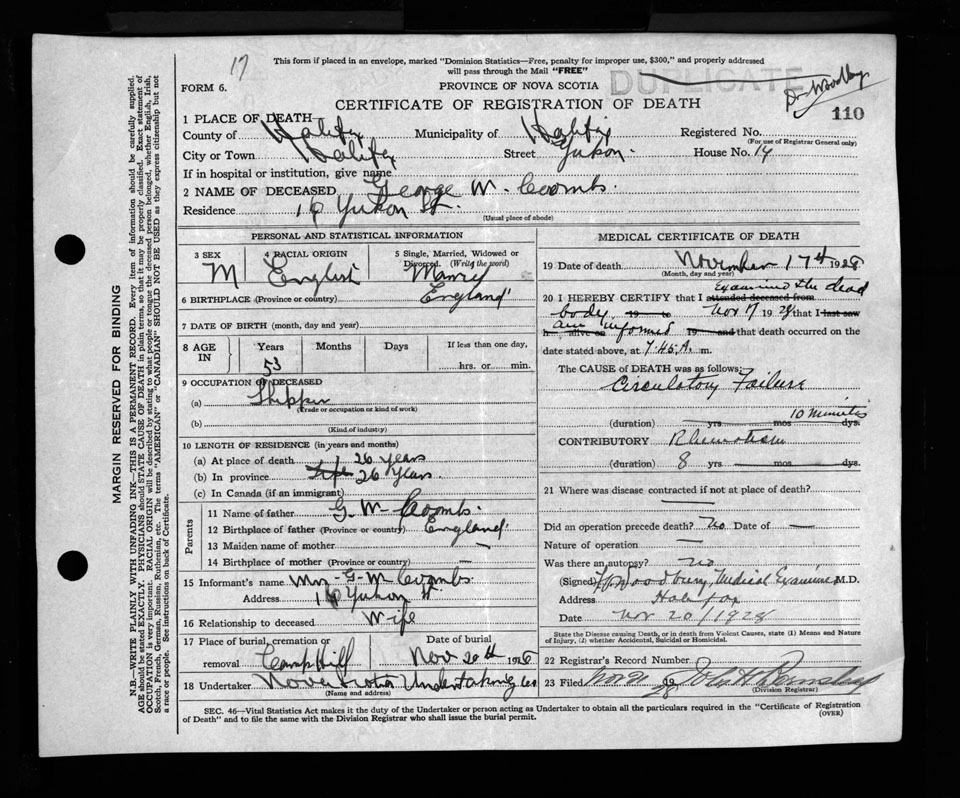 17
This form if placed in an envelope, marked "Dominion Statistics—Free, penalty for improper use, $300," and properly addressed
will pass through the Mail "FREE"
DUPLICATE
FORM 6.
PROVINCE OF NOVA SCOTIA
CERTIFICATE OF REGISTRATION OF DEATH
110
1 PLACE OF DEATH
County of Halifax Municipality of Halifax Registered No.
(For use of Registrar General only)
City or Town Halifax Street Yukon. House No. 14
If in hospital or institution, give name
2 NAME OF DECEASED George M. Coombs.
Residence Yukon St.
(Usual place of abode)
PERSONAL AND STATISTICAL INFORMATION
3 SEX M
4 RACIAL ORIGIN English
5 Single, Married, Widowed or Divorced. (Write the word)
6 BIRTHPLACE (Province or country) England
7 DATE OF BIRTH (month, day and year)
8 AGE IN Years 53 Months Days If less than one day, hrs. or min.
9 OCCUPATION OF DECEASED
(a) Shipper
(Trade or occupation or kind of work)
(b)
(Kind of industry)
10 LENGTH OF RESIDENCE (in years and months)
(a) At place of death 26 years
(b) In province 26 years.
(c) In Canada (if an immigrant)
Parents
11 Name of father G. M. Coombs.
12 Birthplace of father (Province or country) England
13 Maiden name of mother —
14 Birthplace of mother (Province or country) —
15 Informant's name Mrs. G. M. Coombs.
Address Yukon St.
16 Relationship to deceased Wife
17 Place of burial, cremation or removal Camp Hill Date of burial Nov 20th 1928
18 Undertaker Nova Scotia Undertaking Co
(Name and address)
MEDICAL CERTIFICATE OF DEATH
19 Date of death November 17th 1928
(Month, day and year)
20 I HEREBY CERTIFY that I attended deceased from examined the dead
body 19 to Nov 17 1928 that I last saw
h alive on am informed 19 and that death occurred on
date stated above, at 7.45 A. m.
The CAUSE of DEATH was as follows:
Circulatory Failure
(duration) yrs mos 10 minutes dys.
CONTRIBUTORY Rheumatism
(duration) 8 yrs mos dys.
21 Where was disease contracted if not at place of death?
—
Did an operation precede death? No Date of —
Nature of operation —
Was there an autopsy? No
(Signed) Woodbury, Medical Examiner, M.D.
Address Halifax
Date Nov 20/1928
State the Disease causing Death, or in death from Violent Causes, state (1) Means and Nature
of Injury, (2) whether Accidental, Suicidal or Homicidal.
22 Registrar's Record Number
23 Filed Nov
(Division Registrar)
SEC. 46—Vital Statistics Act makes it the duty of the Undertaker or person acting as Undertaker to obtain all the particulars required in the "Certificate of Registration
of Death" and to file the same with the Division Registrar who shall issue the burial permit.
(OVER)
MARGIN RESERVED FOR BINDING
N.B.—WRITE PLAINLY WITH UNFADING INK—THIS IS A PERMANENT RECORD. Every item of information should be carefully supplied.
AGE should be stated EXACTLY. PHYSICIANS should STATE CAUSE OF DEATH in plain terms, so that it may be properly classified. Exact statement of
OCCUPATION is very important. RACIAL ORIGIN will be described by stating to what people or tongue the deceased person belonged, whether English, Irish,
Scotch, French, German, Russian, Ruthenian, etc. The terms "AMERICAN" or "CANADIAN" SHOULD NOT BE USED as they express citizenship but not
a race or people. See instructions on back of Certificate.